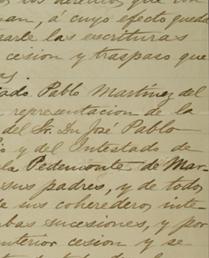 man, á cuyo efecto queda
las escrituras
cesion y traspaso que
Pablo Martinez del
representacion de la
del Sr. Dn José Pablo
y del Intestado de
la Pedemonte de Mar-
sus padres, y de todos
sus coherederos inte-
bas sucesiones, y por
anterior cesion y se